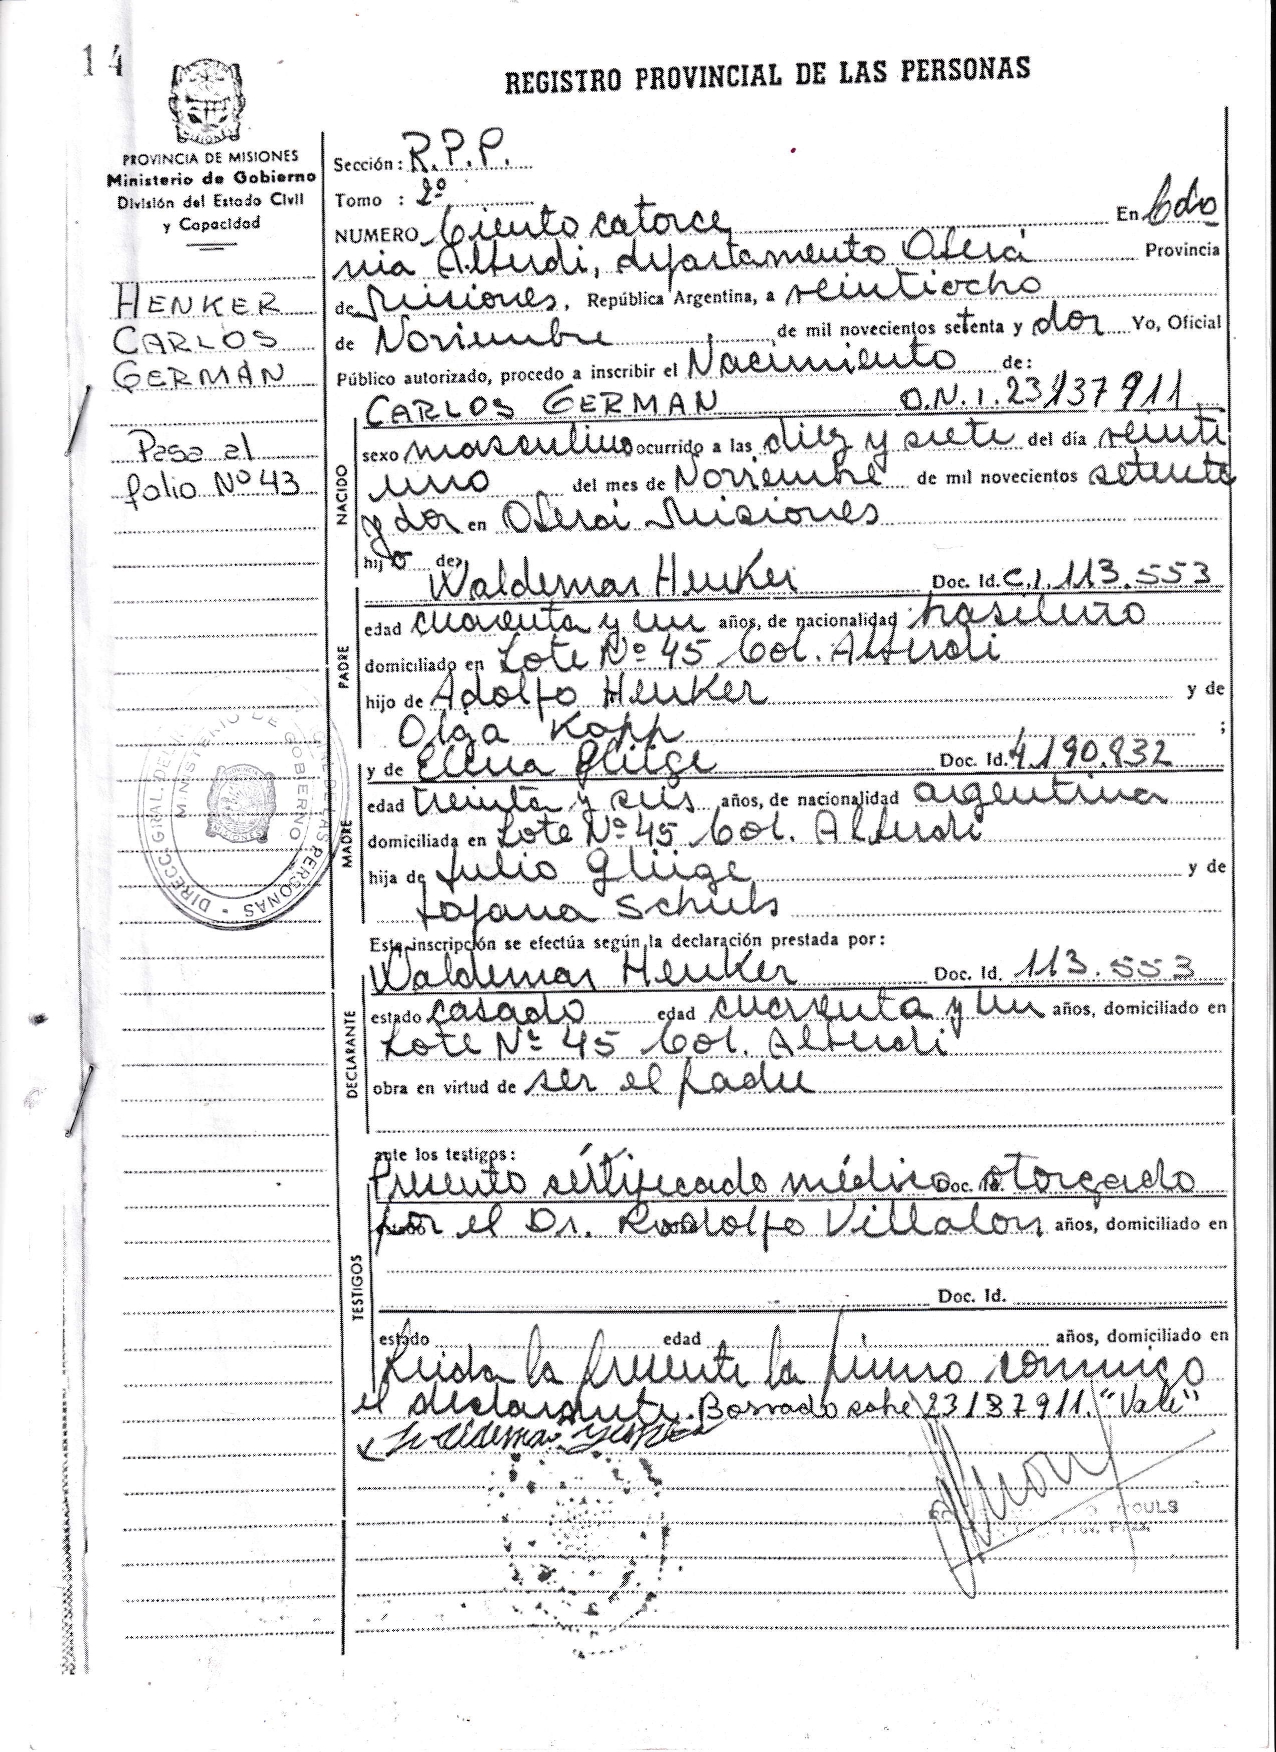 14
REGISTRO PROVINCIAL DE LAS PERSONAS
PROVINCIA DE MISIONES
Ministerio de Gobierno
División del Estado Civil
y Capacidad
HENKER
CARLOS
GERMÁN
Pasa al
folio Nº 43
Sección: R.P.P.
Tomo : 2º
NUMERO Ciento catorce En Colo
nia Alberdi, departamento Oberá Provincia
de Misiones, República Argentina, a veintiocho
de Noviembre de mil novecientos setenta y dos Yo, Oficial
Público autorizado, procedo a inscribir el Nacimiento de:
NACIDO
CARLOS GERMAN D.N.I. 23137911
sexo masculino ocurrido a las diez y siete del día veinti
uno del mes de Noviembre de mil novecientos setenta
y dos en Oberá Misiones
hijo de:
PADRE
Waldemar Henker Doc. Id. C.I. 113.553
edad cuarenta y un años, de nacionalidad brasilero
domiciliado en Lote Nº 45 Col. Alberdi
hijo de Adolfo Henker y de
Olga Kopp ;
MADRE
y de Elena Glüge Doc. Id. 4190.832
edad treinta y seis años, de nacionalidad argentina
domiciliada en Lote Nº 45 Col. Alberdi
hija de Julio Glüge y de
Schuls
Esta inscripción se efectúa según la declaración prestada por:
DECLARANTE
Waldemar Henker Doc. Id. 113.553
estado casado edad cuarenta y un años, domiciliado en
Lote Nº 45 Col. Alberdi
obra en virtud de ser el padre
TESTIGOS
ante los testigos:
Presento certificado médico Doc. Id. otorgado
por el Dr. Rodolfo Villalon años, domiciliado en
Doc. Id.
estado edad años, domiciliado en
Leida la presente la firmo conmigo
el declarante. Borrado sobre 23187911. "Vale"
MINISTERIO DE GOBIERNO
DIRECC. GRAL. DEL PERSONAS